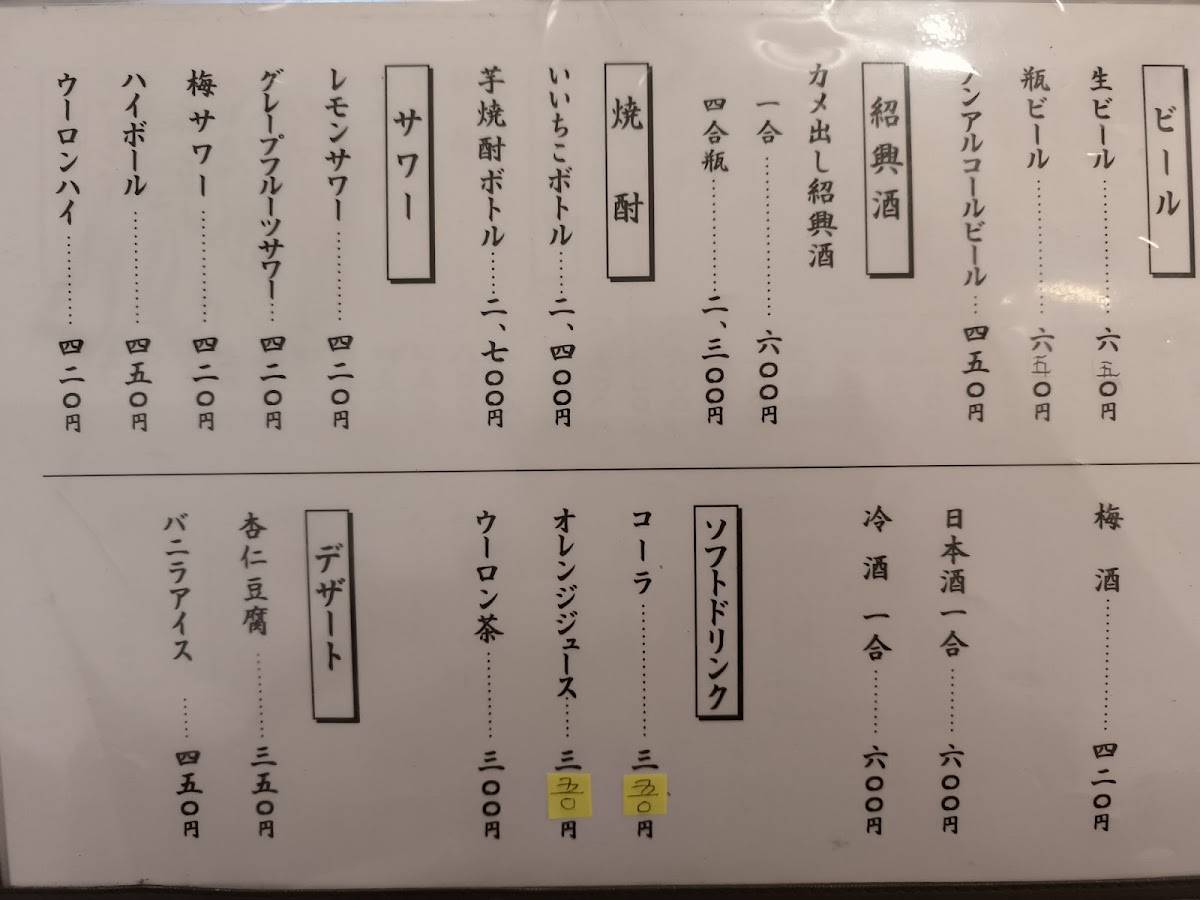 ビール
生ビール…………六五〇円
瓶ビール…………六五〇円
ノンアルコールビール…四五〇円
紹興酒
カメ出し紹興酒
一合…………六〇〇円
四合瓶…………二、三〇〇円
焼酎
いいちこボトル……二、四〇〇円
芋焼酎ボトル……二、七〇〇円
サワー
レモンサワー…………四二〇円
グレープフルーツサワー…四二〇円
梅サワー…………四二〇円
ハイボール…………四五〇円
ウーロンハイ…………四二〇円
梅酒…………四二〇円
日本酒一合………六〇〇円
冷酒一合………六〇〇円
ソフトドリンク
コーラ…………三五〇円
オレンジジュース……三五〇円
ウーロン茶…………三〇〇円
デザート
杏仁豆腐…………三五〇円
バニラアイス……四五〇円